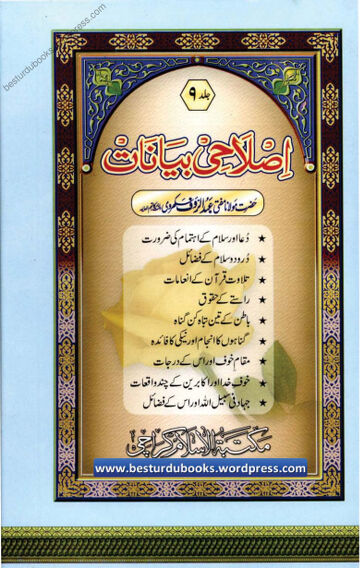 besturdubooks.wordpress.com
جلد ۹
اصلاحی بیانات
حضرت مولانا مفتی عبدالرؤف سکھروی
★ دُعا اور سلام کے اہتمام کی ضرورت
★ دُرود و سلام کے فضائل
★ تلاوتِ قرآن کے انعامات
★ راستے کے حقوق
★ باطن کے تین تباہ کن گناہ
★ گناہوں کا انجام اور نیکی کا فائدہ
★ مقامِ خوف اور اس کے درجات
★ خوفِ خدا اور اکابرین کے چند واقعات
★ جہاد فی سبیل اللہ اور اس کے فضائل
مکتبۃ الاسلام کراچی
www.besturdubooks.wordpress.com